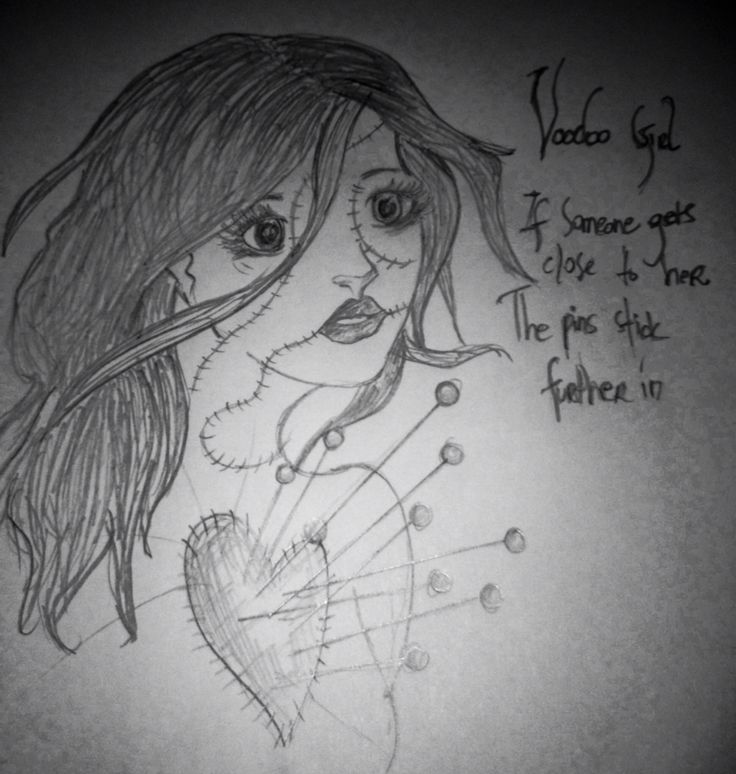 Voodoo Girl
If Someone gets
close to her
The pins stick
further in